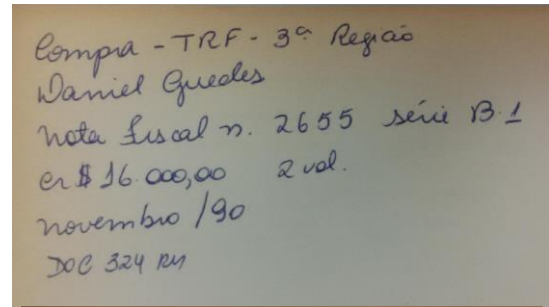 Compra - TRF - 3ª Região
Daniel Guedes
nota fiscal n. 2655 série B.1
cr$ 16.000,00 2 vol.
novembro /90
DOC 324